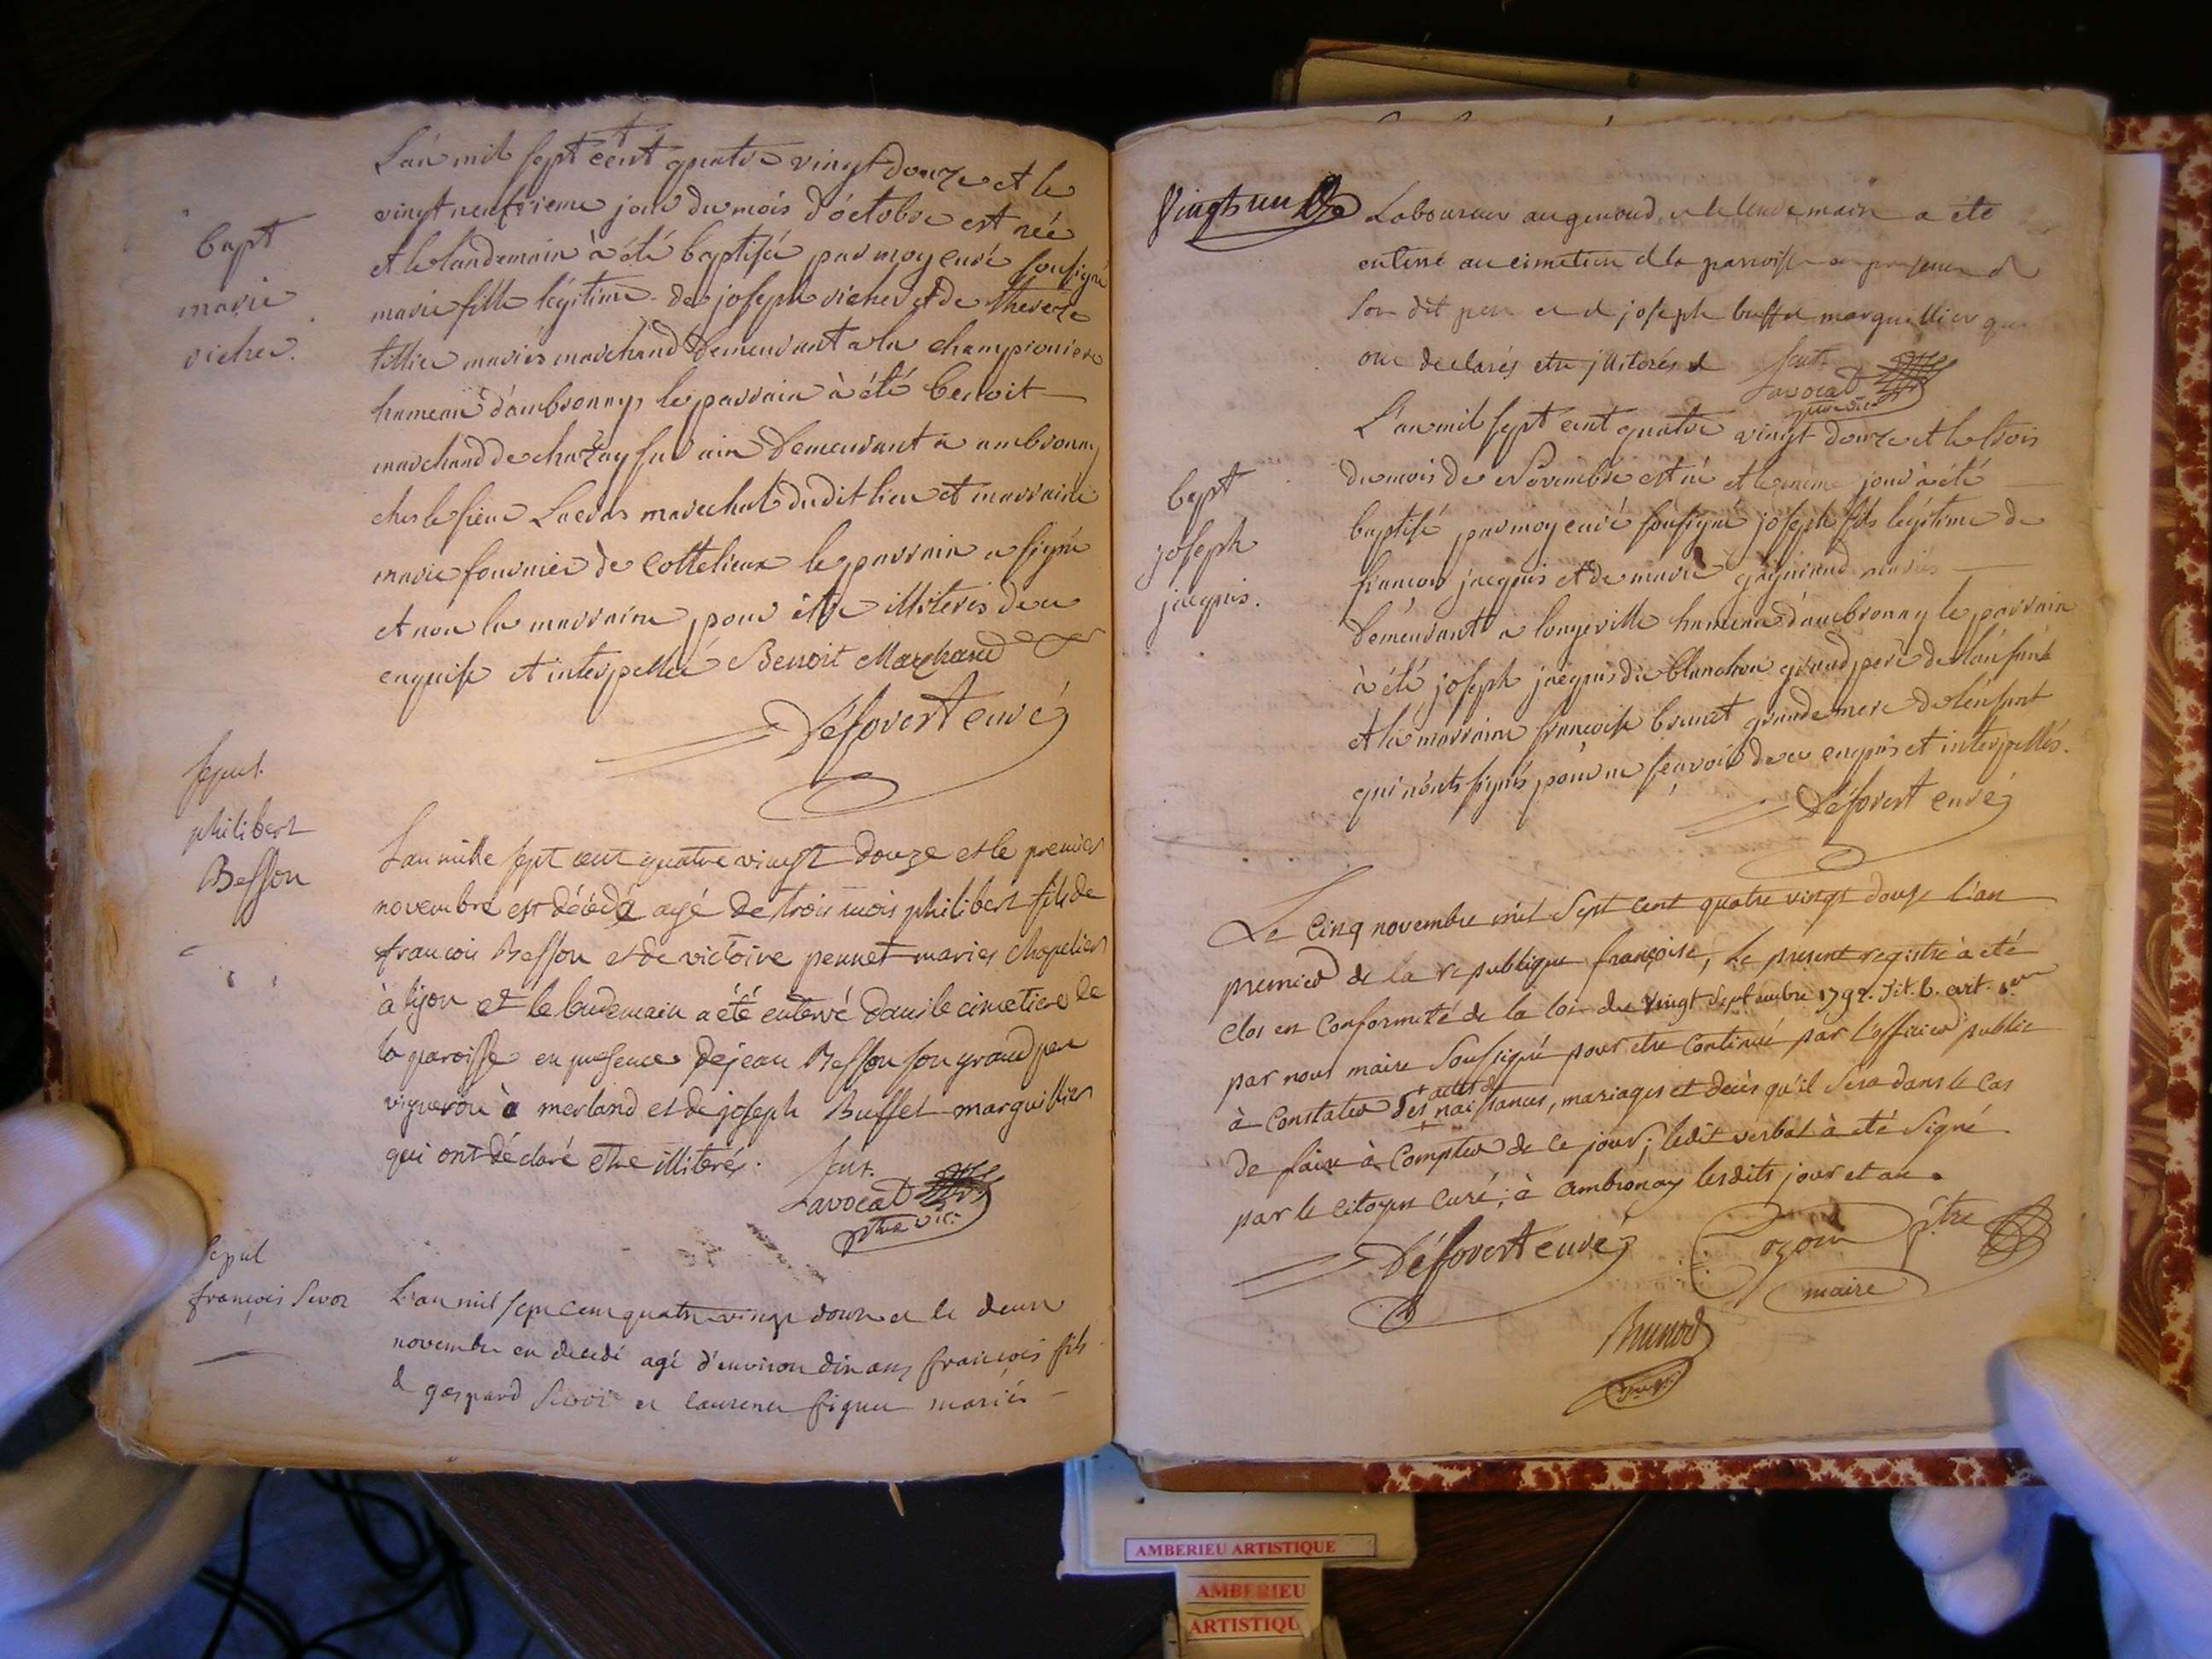 bapt
marie
vicher.
L'an mil sept cent quatre vingt douze et le
vingt neufvieme jour du mois d'octobre est née
et le landemain à été baptisée par moy curé sousigné
marie fille légitime de joseph vicher et de therese
tillier mariés marchand demeurant a la championiere
hameau d'ambronnay, le parrain à été benoit
marchand de chazay sur ain demeurant a ambronnay
ches le sieur Lucras marechal dudit lieu et marraine
marie fournier de Cottelieux le parrain a signé
et non la marraine pour être illiterés de ce
enquise et interpellée Benoit Marchand
Déforest curé
sepul.
philibert
Besson
L'an mille sept cent quatre vingt douze et le premier
novembre est décédé agé de trois mois philibert fils de
francois Besson et de victoire pennet mariés chapelier
à lyon et le lendemain a été enterré dans le cimetiere de
la paroisse en presence de jean Besson son grand pere
vigneron à merland et de joseph Buffet marguillier
qui ont déclaré etre illiterés.
Lavocat
ptre vic.
sepul
françois
L'an mil sept cent quatre vingt douze et le deux
novembre est decedé agé d'environ dix ans françois fils
de gaspard et laurence mariés
Vingt un
Laboureur au genoud et le lendemain a été
enterré au cimetiere de la parroisse en presence de
son dit pere et de joseph buffet marguillier qui
ont declarés etre illiterés
Lavocat
ptre vic
bapt
joseph
jacquis.
L'an mil sept cent quatre vingt douze et le trois
du mois de Novembre est né et le même jour à été
baptisé par moy curé sousigné joseph fils légitime de
françois jacquis et de marie mariés
demeurant a longeville hameau d'ambronnay le parrain
à été joseph jacquis dit blanchon grand pere de l'enfant
et la marraine françoise brunet grande mere de l'enfant
qui n'ont signés pour ne sçavoir de ce enquis et interpellés.
Déforest curé
Le Cinq novembre mil sept cent quatre vingt douze l'an
premier de la republique françoise, le present registre à été
clos en conformité de la loi du vingt septembre 1792. tit. 6. art. 1er
par nous maire soussigné pour etre continué par l'officier public
à constater des + actes de naissances, mariages et décès qu'il sera dans le cas
de faire à compter de ce jour; ledit verbal à été signé
par le citoyen curé; à ambronay lesdits jour et an.
Déforest curé
maire
Brunod
AMBERIEU ARTISTIQUE
AMBERIEU
ARTISTIQU